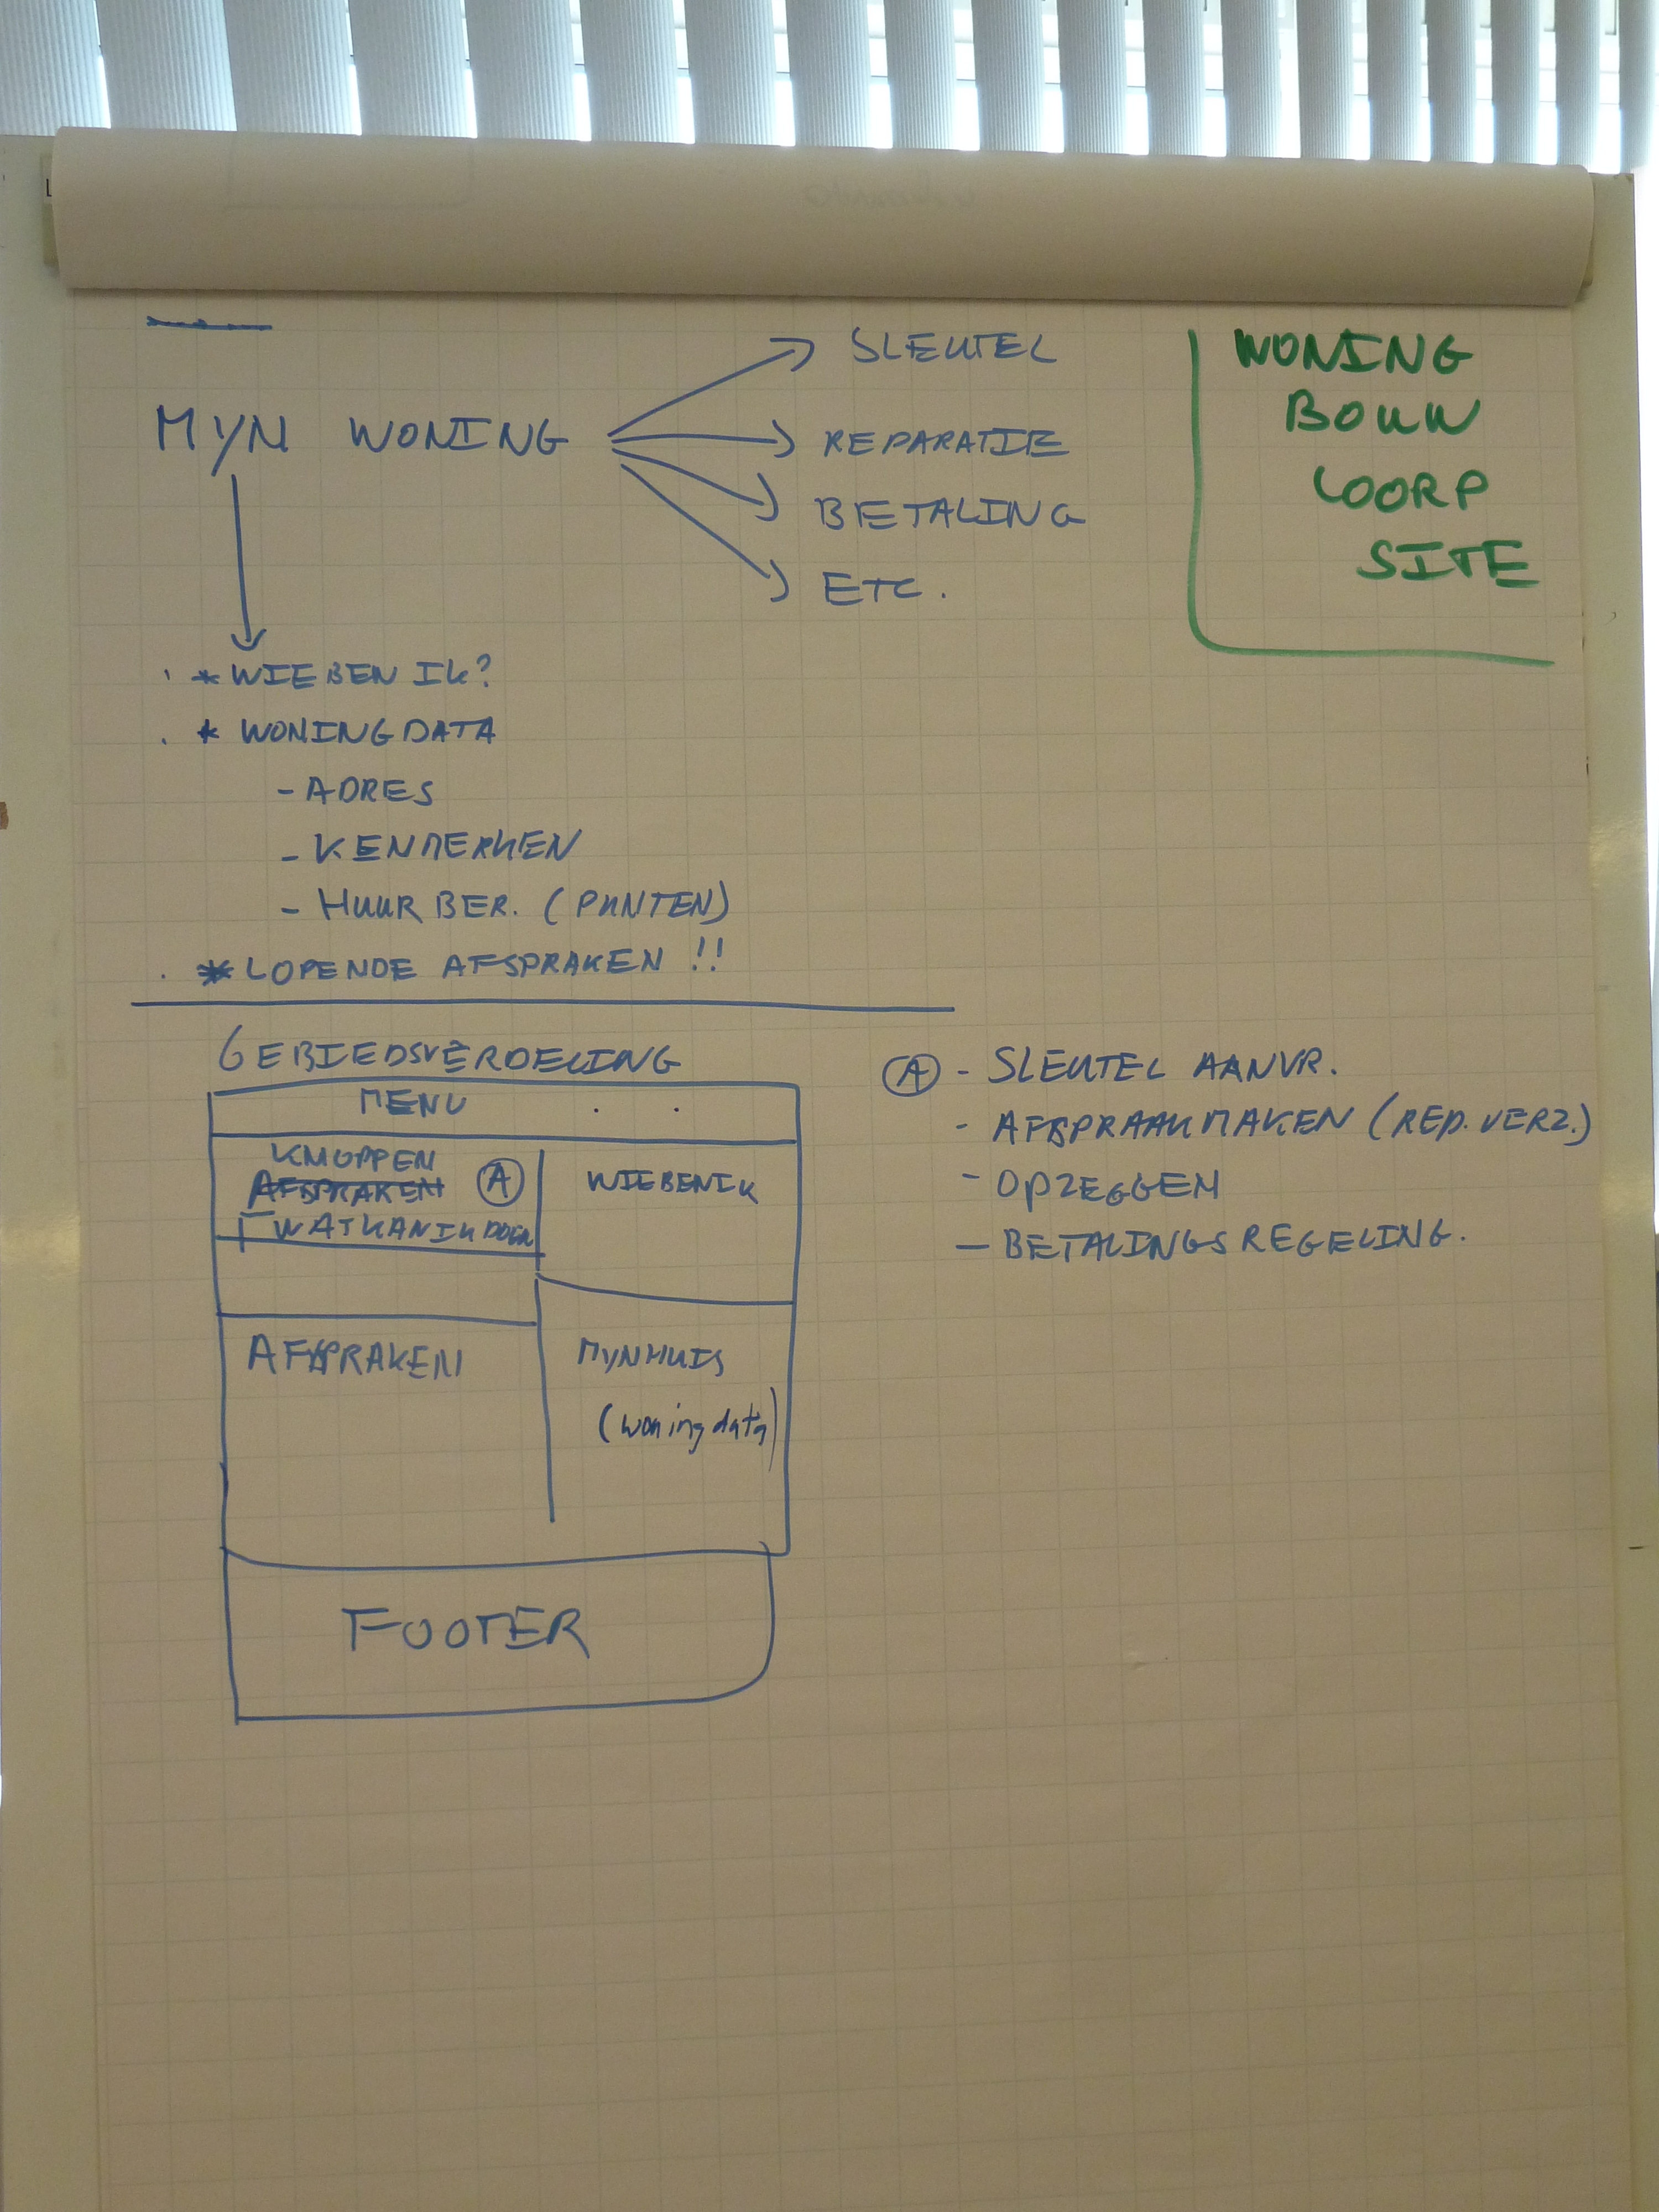 MYN WONING
SLEUTEL
REPARATIE
BETALING
ETC.
WONING
BOUW
COORP
SITE
* WIE BEN IK?
* WONINGDATA
- ADRES
- KENMERKEN
- HUUR BER. (PUNTEN)
* LOPENDE AFSPRAKEN !!
GEBIEDSVERDELING
MENU . .
KNOPPEN
AFSPRAKEN A
WAT KAN IK DOEN
WIE BEN IK
AFSPRAKEN
MYN HUIS
(woning data)
FOOTER
A - SLEUTEL AANVR.
- AFSPRAAK MAKEN (REP. VERZ.)
- OPZEGGEN
- BETALINGSREGELING.